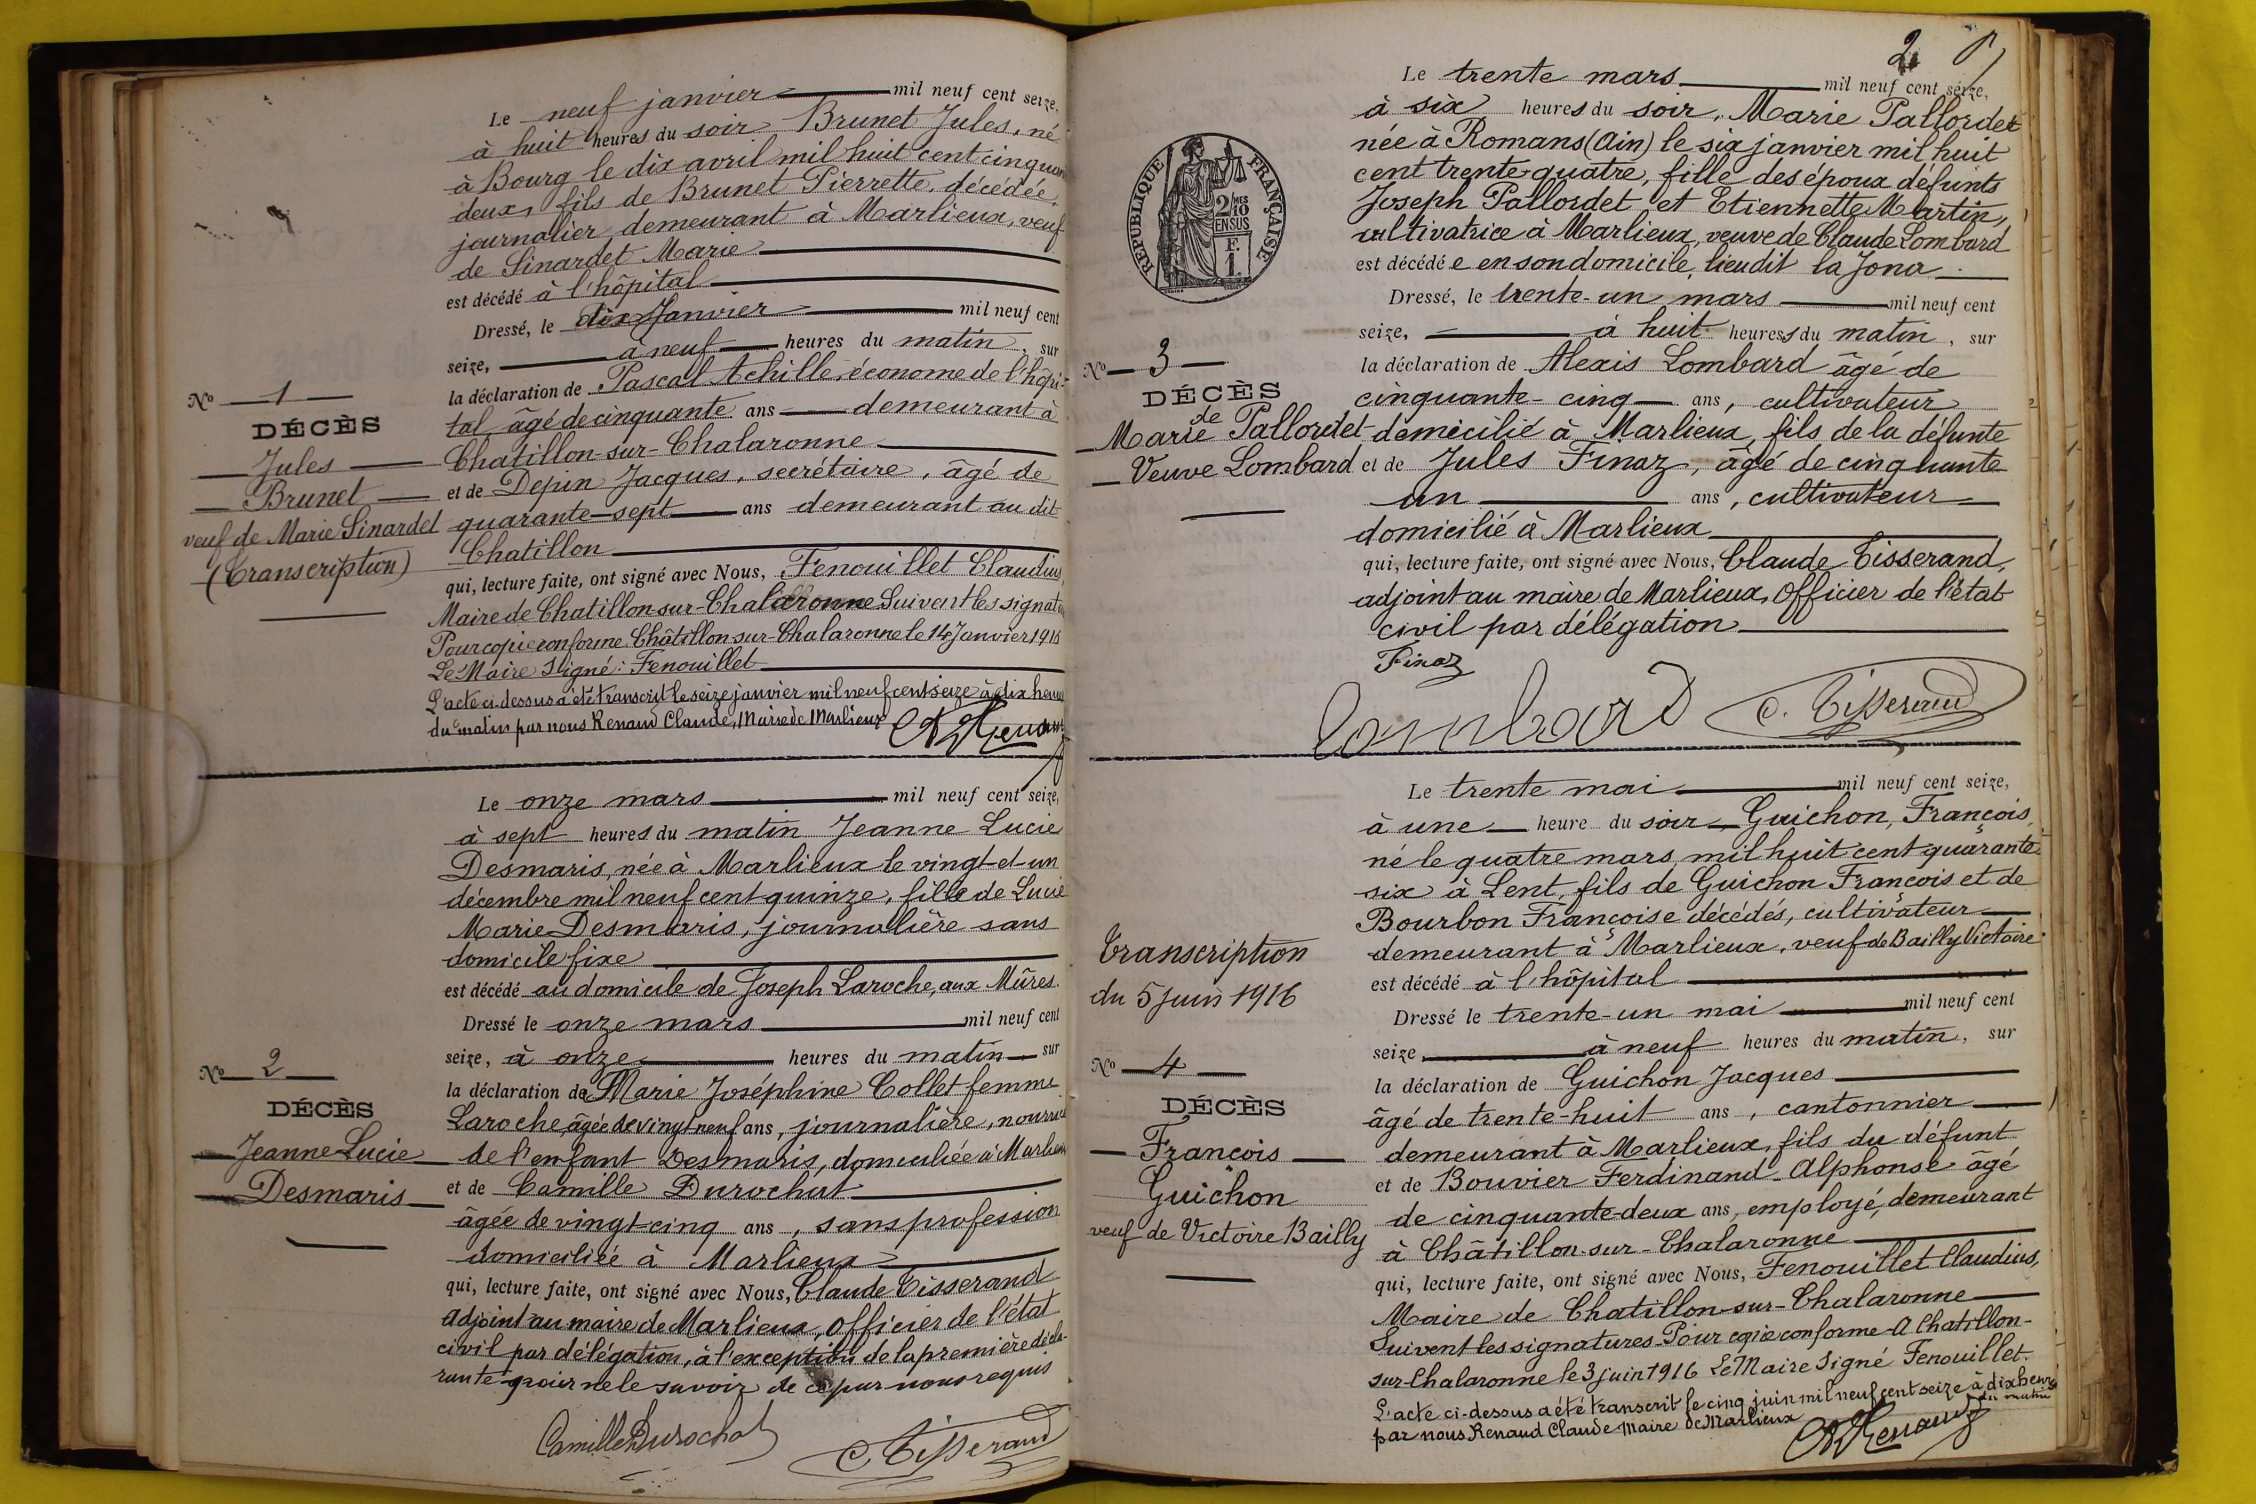 Le neuf janvier mil neuf cent seize,
à huit heures du soir Brunet Jules, né
à Bourg le dix avril mil huit cent cinquan
deux, fils de Brunet Pierrette, décédée,
journalier, demeurant à Marlieux, veuf
de Sinardet Marie
est décédé à l'hôpital
Dressé, le dix Janvier mil neuf cent
seize, à neuf heures du matin, sur
la déclaration de Pascal Achille, économe de l'hôpi-
tal, âgé de cinquante ans demeurant à
Chatillon-sur-Chalaronne
et de Depin Jacques, secrétaire, âgé de
quarante-sept ans demeurant au dit
Chatillon
qui, lecture faite, ont signé avec Nous, Fenouillet Claudius,
Maire de Chatillon-sur-Chalaronne Suivent les signatu
Pour copie conforme. Châtillon-sur-Chalaronne le 14 Janvier 1916
Le Maire Signé: Fenouillet
L'acte ci-dessus a été transcrit le seize janvier mil neuf cent seize à dix heures
du matin par nous Renaud Claude, Maire de Marlieux
Renaud
No 1
DÉCÈS
Jules
Brunet
veuf de Marie Sinardet
(Transcription)
Le onze mars mil neuf cent seize,
à sept heures du matin Jeanne Lucie
Desmaris, née à Marlieux le vingt-et-un
décembre mil neuf cent quinze, fille de Lucie
Marie Desmaris, journalière sans
domicile fixe
est décédé au domicile de Joseph Laroche, aux Mûres
Dressé le onze mars mil neuf cent
seize, à onze heures du matin sur
la déclaration de Marie Joséphine Collet femme
Laroche, âgée de vingt neuf ans, journalière, nourrice
de l'enfant Desmaris, domiciliée à Marlieux
et de Camille Durochat
âgée de vingt-cinq ans, sans profession
domiciliée à Marlieux
qui, lecture faite, ont signé avec Nous, Claude Tisserand
adjoint au maire de Marlieux, officier de l'état
civil par délégation, à l'exception de la première décla-
rante pour ne le savoir de ce par nous requis
Camille Durochat
C. Tisserand
No 2
DÉCÈS
Jeanne Lucie
Desmaris
2
Le trente mars mil neuf cent seize,
à six heures du soir, Marie Pallordet
née à Romans (Ain) le six janvier mil huit
cent trente quatre, fille des époux défunts
Joseph Pallordet et Etiennette Martin,
cultivatrice à Marlieux, veuve de Claude Lombard
est décédé e en son domicile, lieudit la Jona
Dressé, le trente-un mars mil neuf cent
seize, à huit heures du matin, sur
la déclaration de Alexis Lombard âgé de
cinquante-cinq ans, cultivateur
domicilié à Marlieux, fils de la défunte
et de Jules Finaz, âgé de cinquante
un ans, cultivateur
domicilié à Marlieux
qui, lecture faite, ont signé avec Nous, Claude Tisserand,
adjoint au maire de Marlieux, Officier de l'état
civil par délégation
Finaz
Lombard
C. Tisserand
RÉPUBLIQUE FRANÇAISE
2/10 MES
EN SUS
F.
1.
No 3
DÉCÈS
de
Marie Pallordet
Veuve Lombard
Le trente mai mil neuf cent seize,
à une heure du soir Guichon, François,
né le quatre mars mil huit cent quarante-
six à Lent, fils de Guichon François et de
Bourbon Françoise décédés, cultivateur
demeurant à Marlieux, veuf de Bailly Victoire
est décédé à l'hôpital
Dressé le trente-un mai mil neuf cent
seize à neuf heures du matin, sur
la déclaration de Guichon Jacques
âgé de trente-huit ans, cantonnier
demeurant à Marlieux, fils du défunt
et de Bouvier Ferdinand-Alphonse âgé
de cinquante-deux ans, employé, demeurant
à Châtillon-sur-Chalaronne
qui, lecture faite, ont signé avec Nous, Fenouillet Claudius,
Maire de Chatillon-sur-Chalaronne
Suivent les signatures-Pour copie conforme-A Chatillon-
sur-Chalaronne le 3 juin 1916 Le Maire Signé Fenouillet.
L'acte ci-dessus a été transcrit le cinq juin mil neuf cent seize à dix heures
du matin
par nous Renaud Claude Maire de Marlieux
Renaud
Transcription
du 5 Juin 1916
No 4
DÉCÈS
François
Guichon
veuf de Victoire Bailly